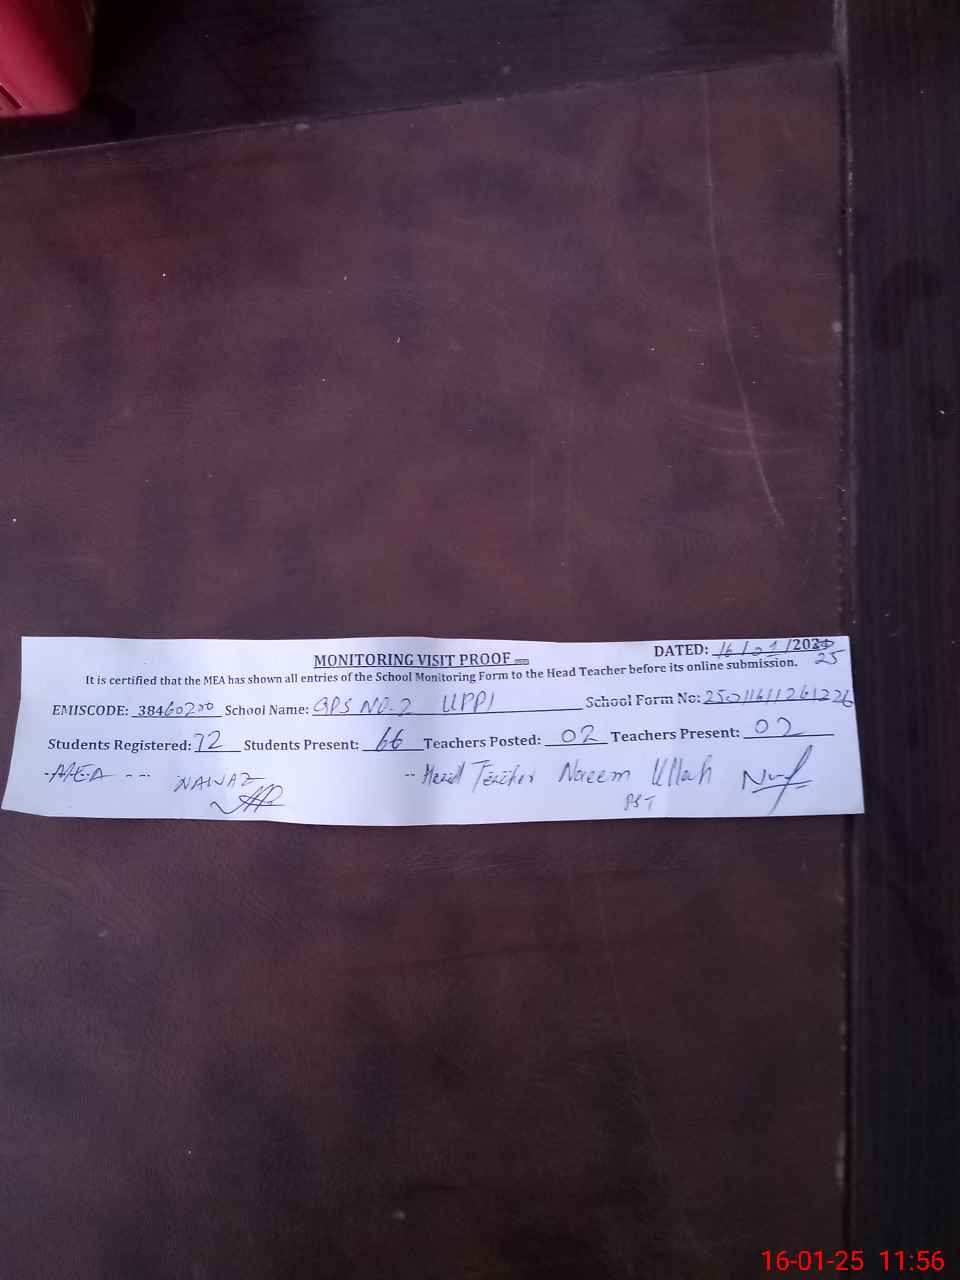 DATED: 16/01/2024
25
MONITORING VISIT PROOF
It is certified that the MEA has shown all entries of the School Monitoring Form to the Head Teacher before its online submission.
EMISCODE: 38460200 School Name: GPS NO-2 UPPI School Form No: 25011611261226
Students Registered: 72 Students Present: 66 Teachers Posted: 02 Teachers Present: 02
-MEA --- NAWAZ -- Head Teacher Naeem Ullah
PST
16-01-25 11:56